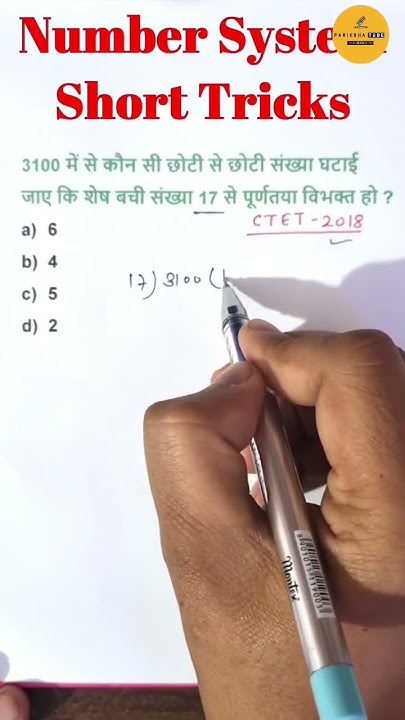 Number System
Short Tricks
PARIKSHA TUBE
3100 में से कौन सी छोटी से छोटी संख्या घटाई
जाए कि शेष बची संख्या 17 से पूर्णतया विभक्त हो ?
CTET-2018
a) 6
b) 4
c) 5
d) 2
17)3100(1
Montex